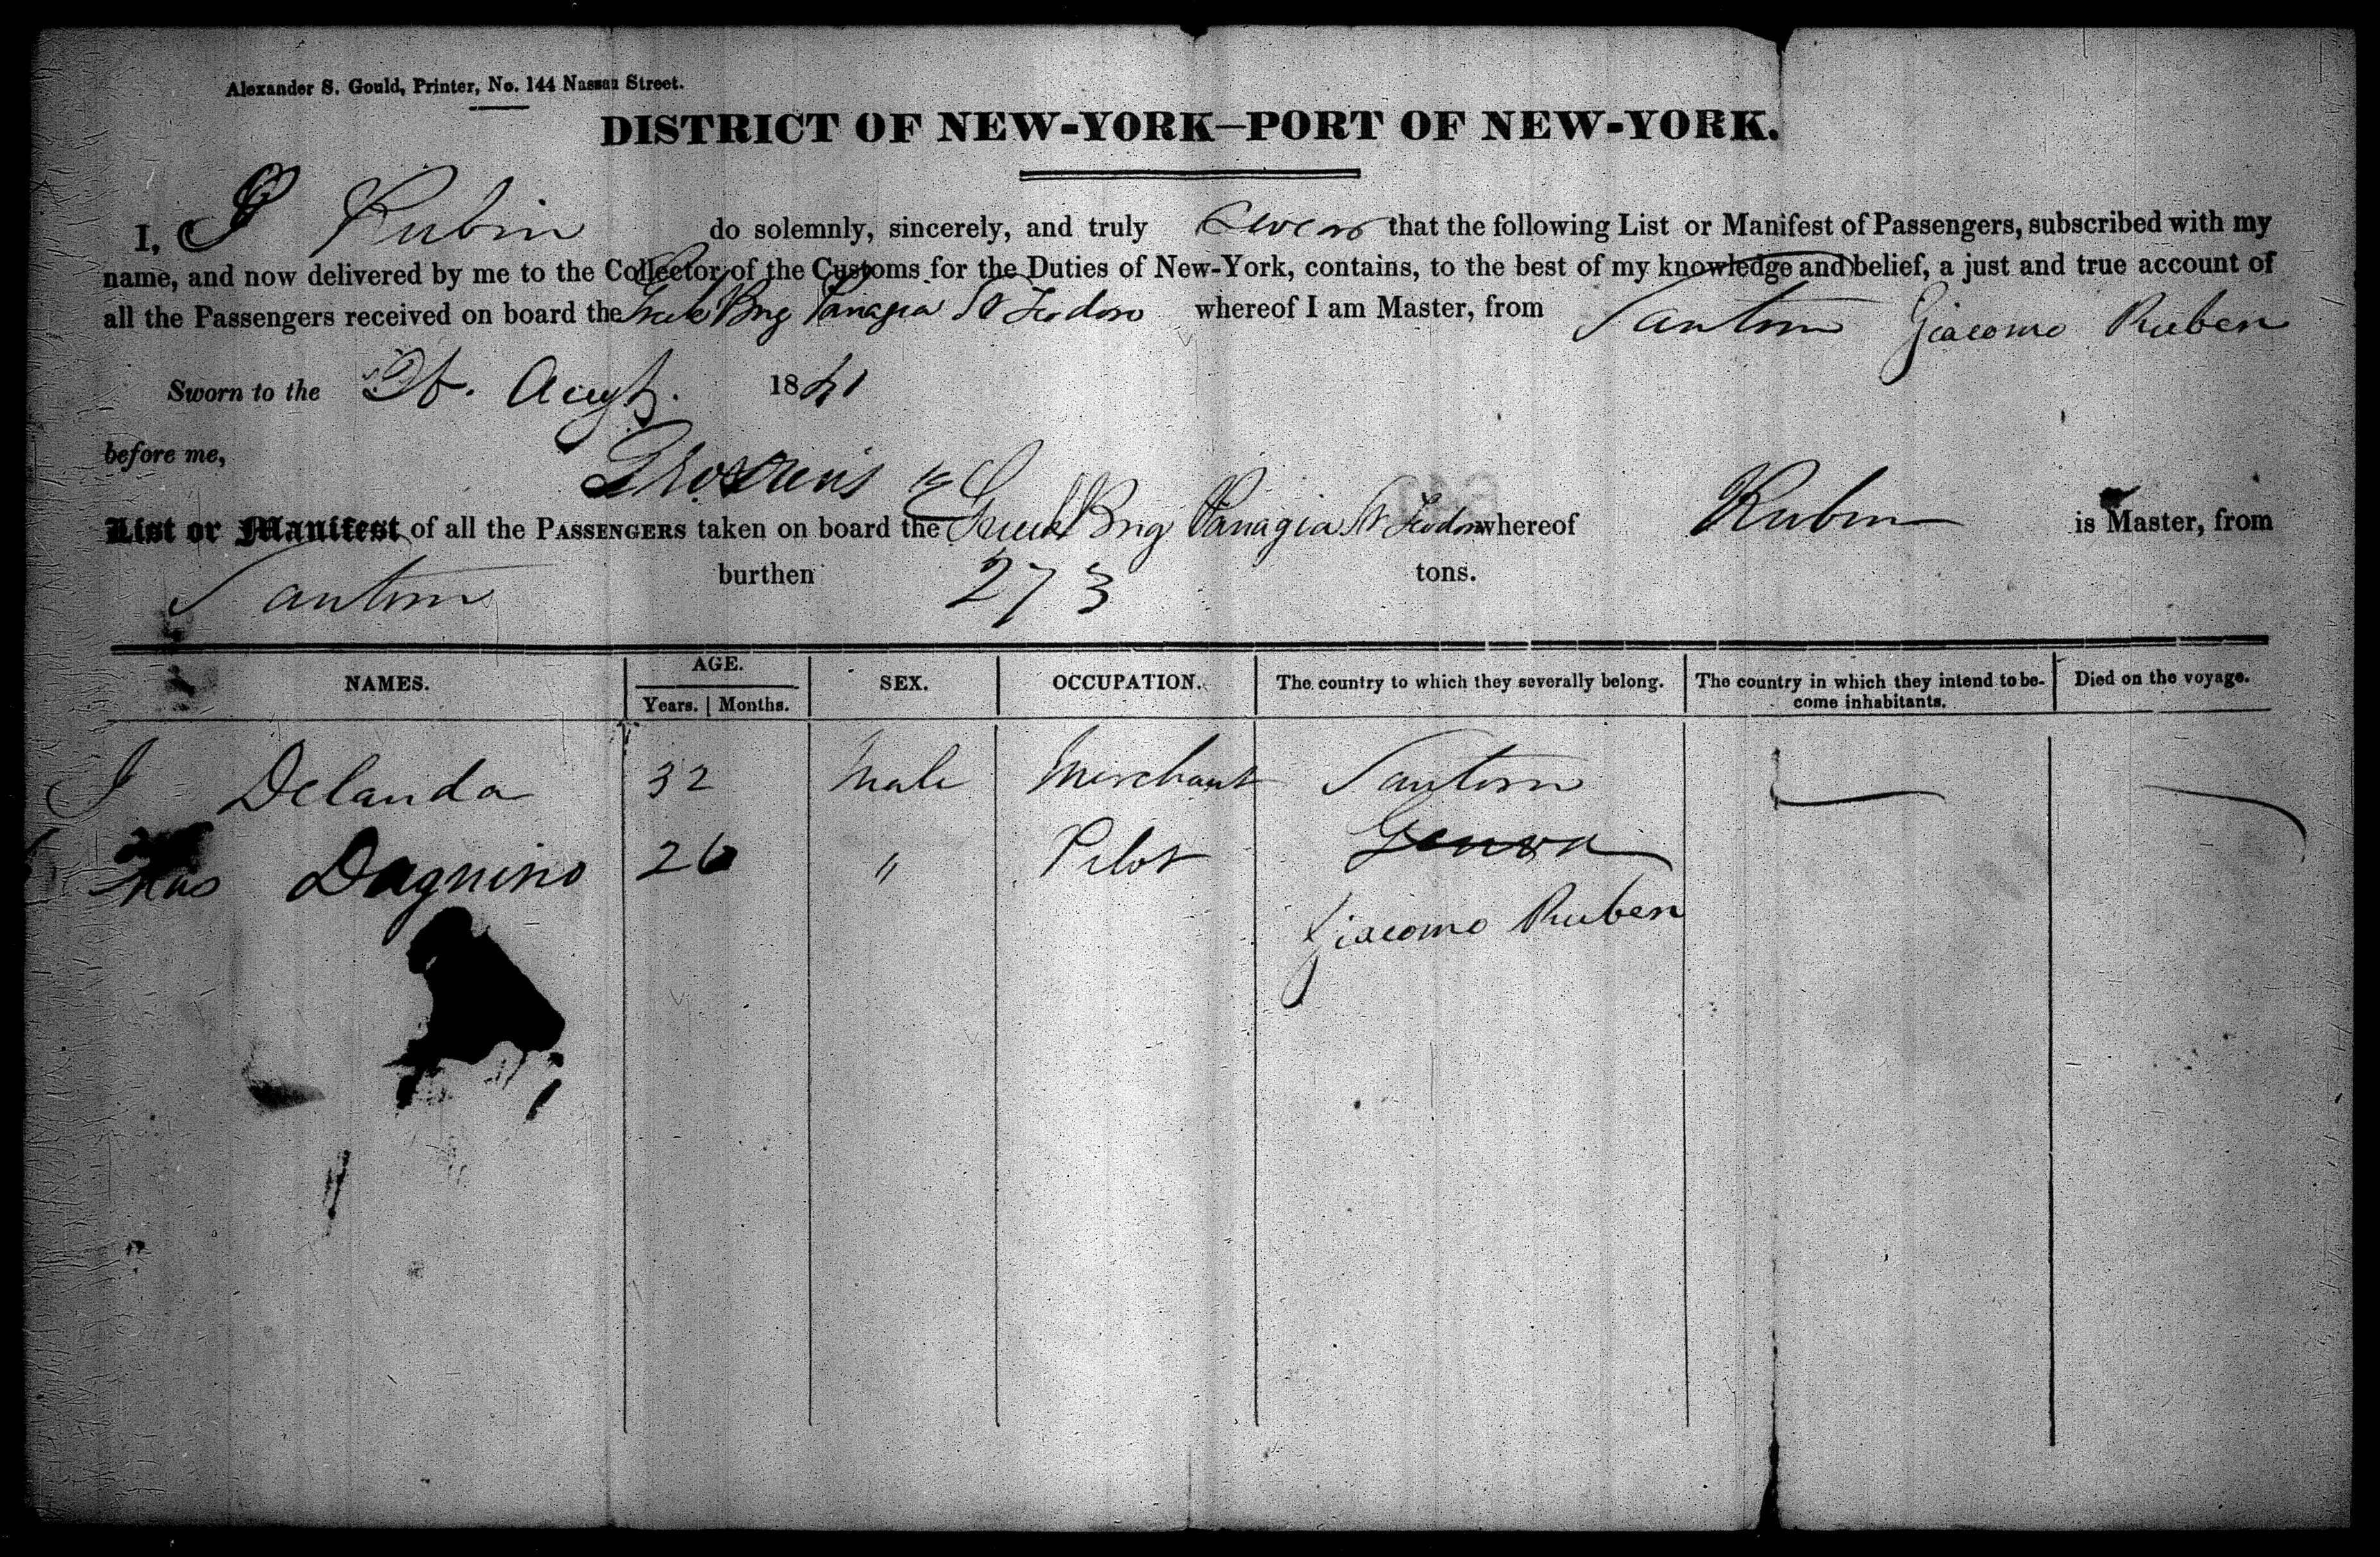 Alexander S. Gould, Printer, No. 144 Nassau Street.
DISTRICT OF NEW-YORK—PORT OF NEW-YORK.
I, Rubin do solemnly, sincerely, and truly swear that the following List or Manifest of Passengers, subscribed with my
name, and now delivered by me to the Collector of the Customs for the Duties of New-York, contains, to the best of my knowledge and belief, a just and true account of
all the Passengers received on board the Greek Brig Panagia St whereof I am Master, from Santorin Giacomo Ruben
Sworn to the Augt. 1841
before me,
List or Manifest of all the PASSENGERS taken on board the Greek Brig Panagia St whereof Rubin is Master, from
Santorin burthen 273 tons.
NAMES. AGE. Years. Months. SEX. OCCUPATION. The country to which they severally belong. The country in which they intend to become inhabitants. Died on the voyage.
J Delanda 32 Male Merchant Santorin
Dagnino 26 " Pilot Genova
Giacomo Ruben